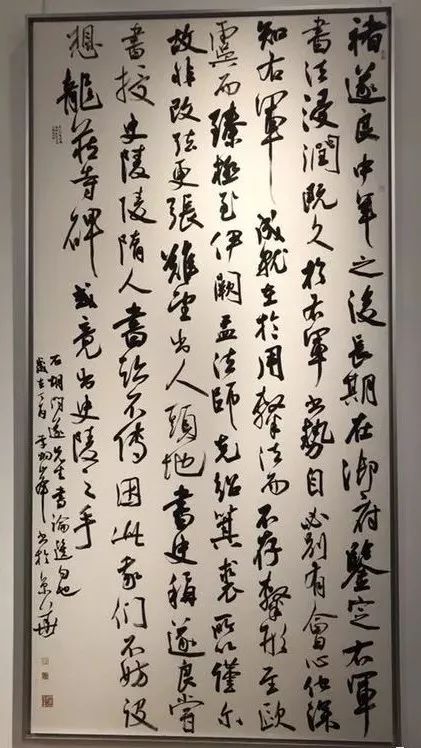 褚遂良中年之後長期在御府鑒定右軍
書法浸潤既久於右軍書勢自必别有會心他深
知右軍成就在於用筆法而不存筆形至歐
虞而臻極至伊闕孟法師克紹箕裘所以僅尔
故非改弦更張難望出人頭地書史稱遂良嘗
書授史陵陵隋人書跡不傳因此我們不妨設
想龍藏寺碑或竟出史陵之手
石胡問遂先生書論選句也
歲在丁酉李書於京華